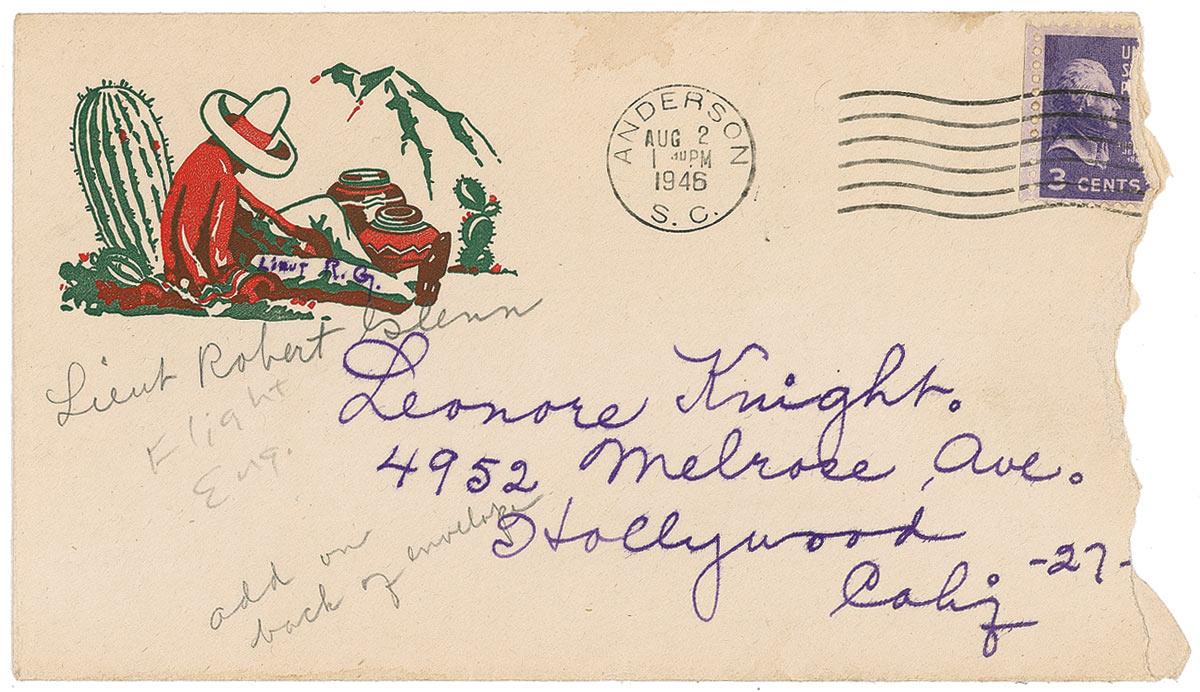 ANDERSON
AUG 2
PM
1946
S. C.
3 CENTS
Lieut R. G.
Lieut Robert Glenn
Flight
Eng.
Leonore Knight.
4952 Melrose Ave.
Hollywood -27-
Calif
add on
back of envelope